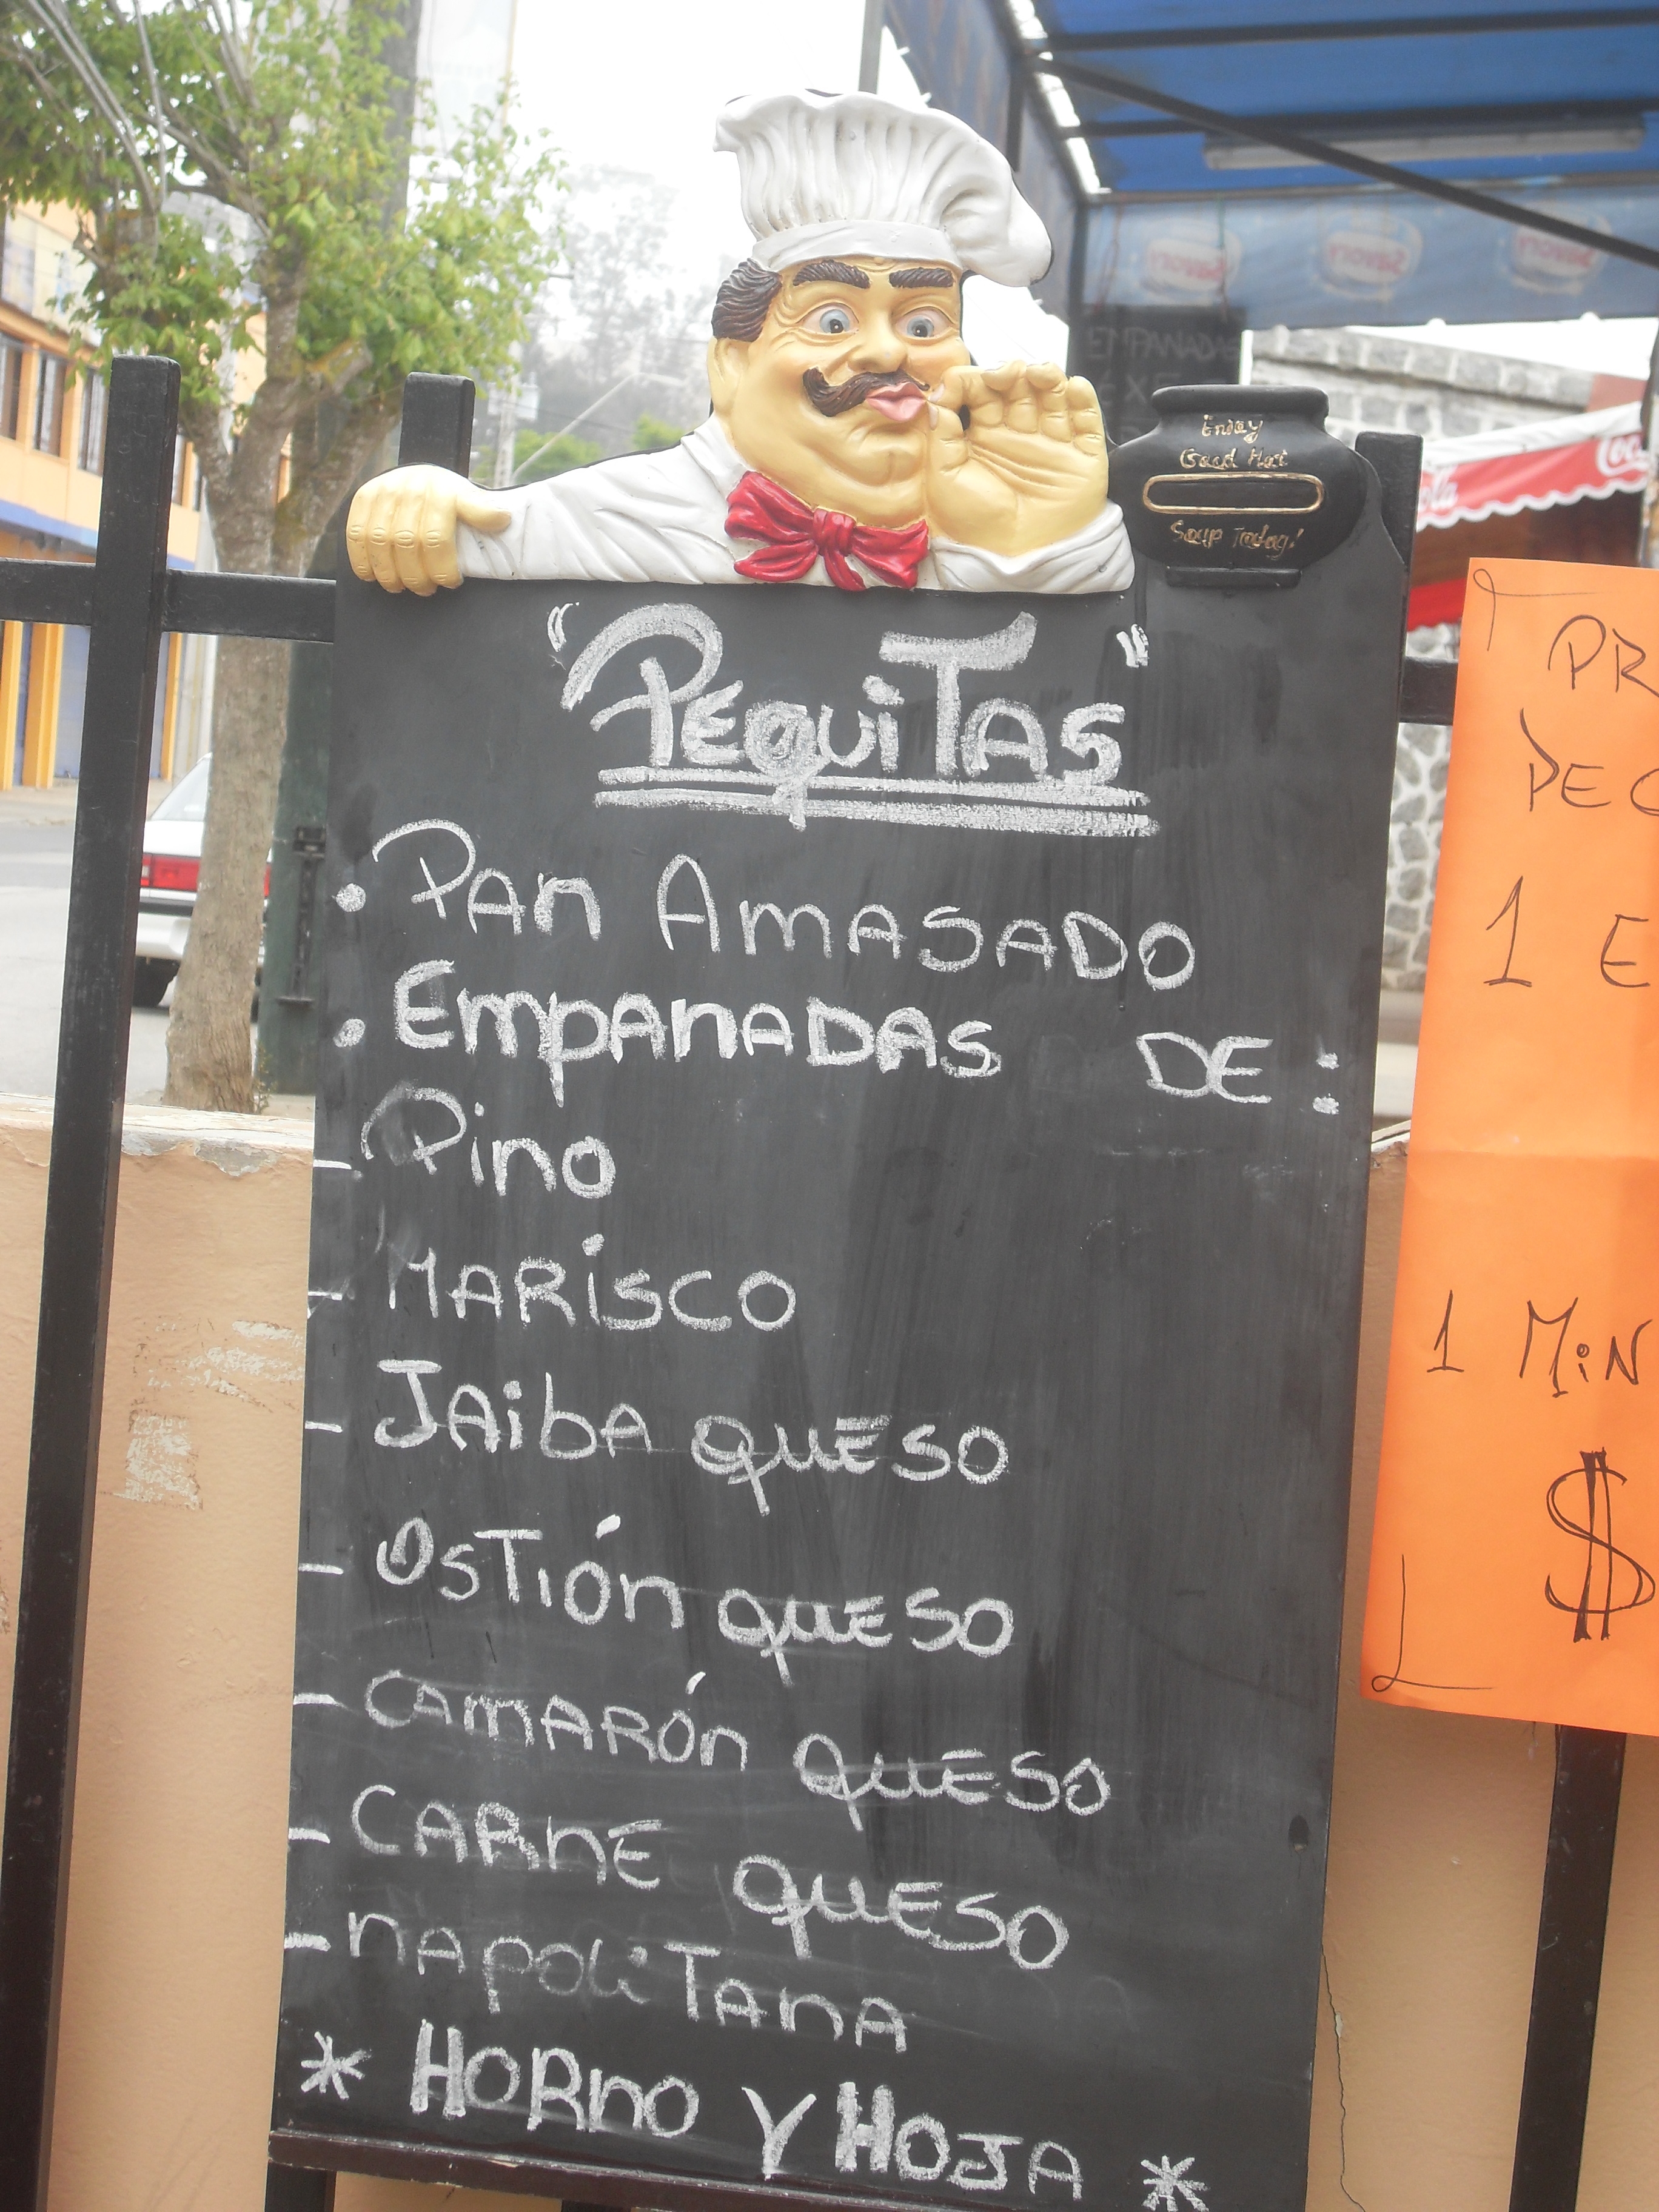 Enjoy
Good Hot
Soup Today!
"PEquiTAS"
• PAn AmASADO
• EmpAnADAS DE:
- Pino
- MARisCO
- JAibA quESO
- OsTión quESO
- CAmARÓn quESO
- CARnE quESO
- nApoliTAnA
* HORnO Y HOJA *
EMPANADAS
1 E
1 MiN
$